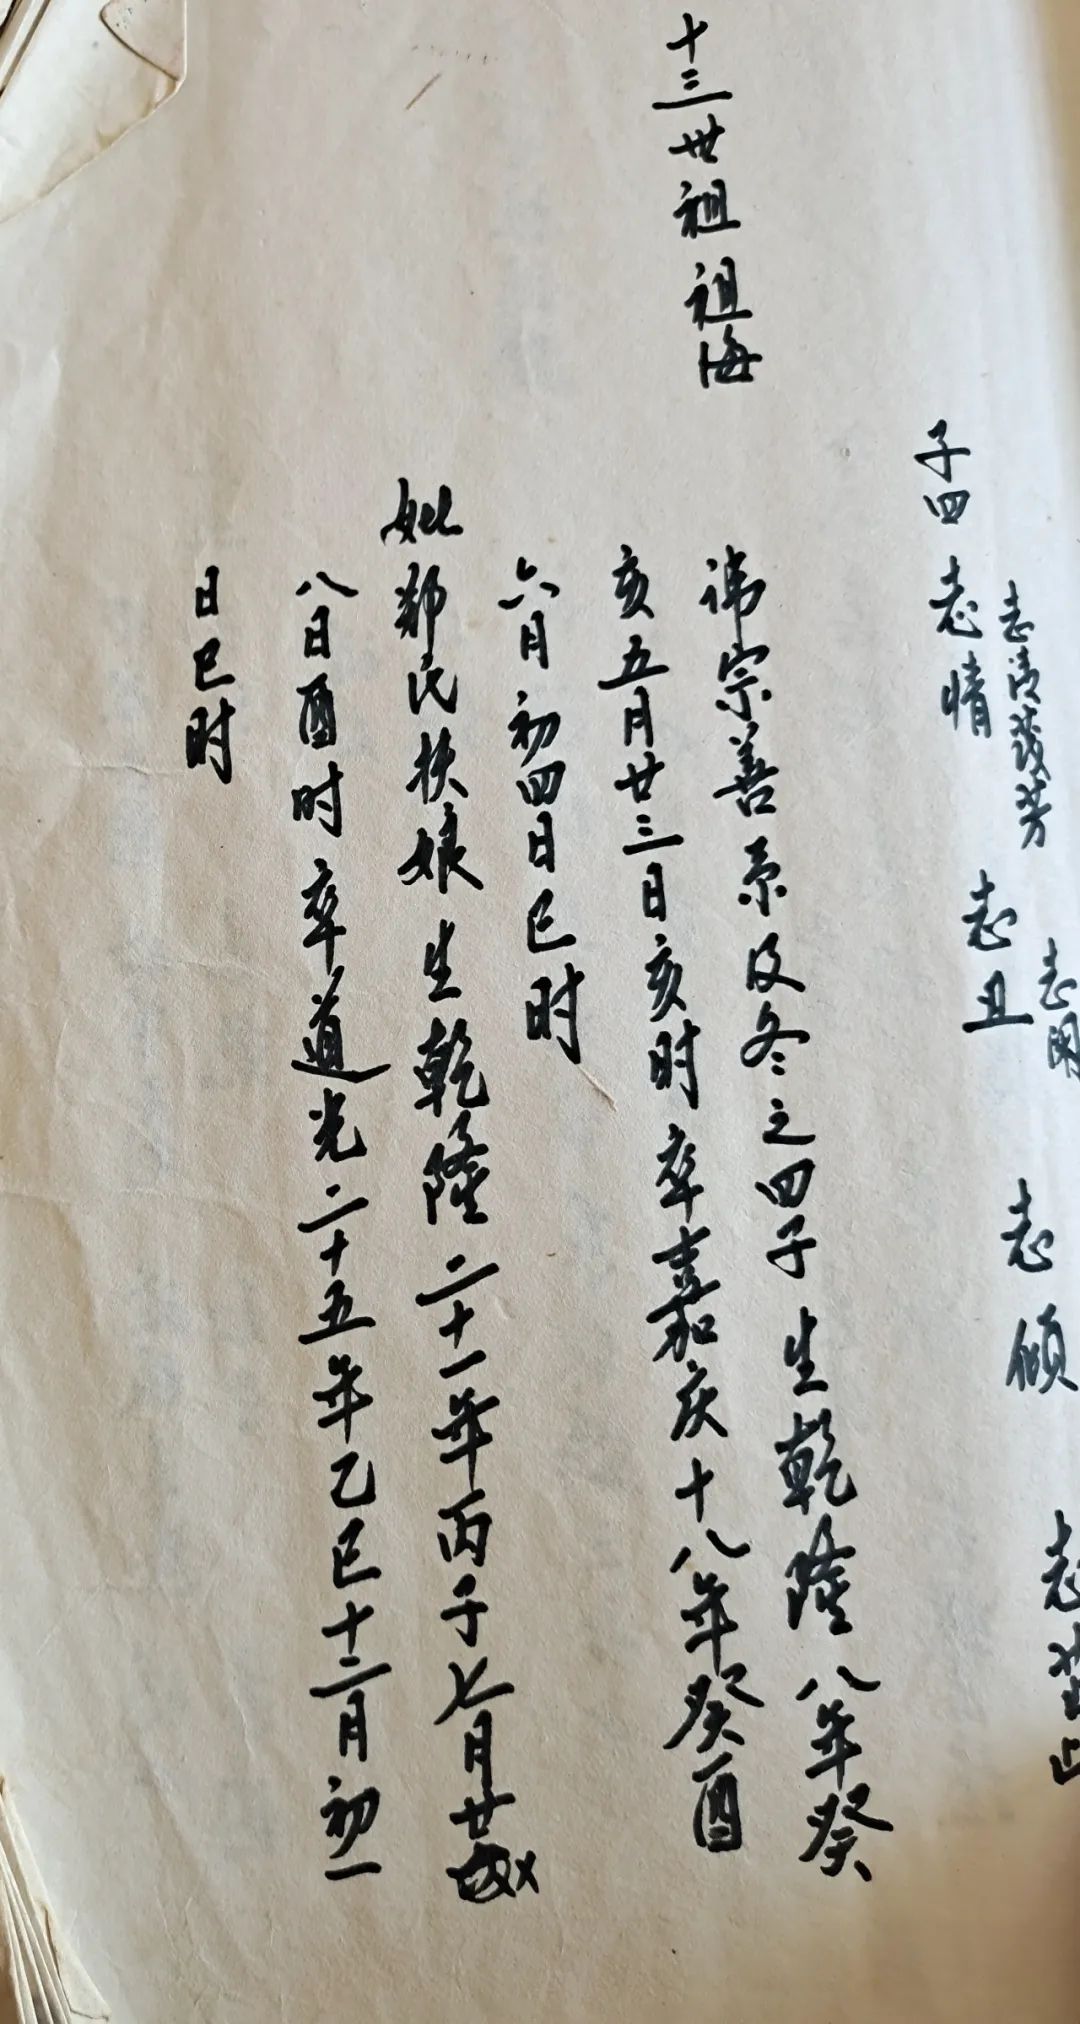 子四 志情 志丑 志倾 志
十三世祖祖海
讳宗善系及冬之四子 生乾隆八年癸
亥五月廿三日亥时 卒嘉庆十八年癸酉
六月初四日巳时
妣郑氏扶娘 生乾隆二十一年丙子七月廿
八日酉时 卒道光二十五年乙巳十二月初一
日巳时